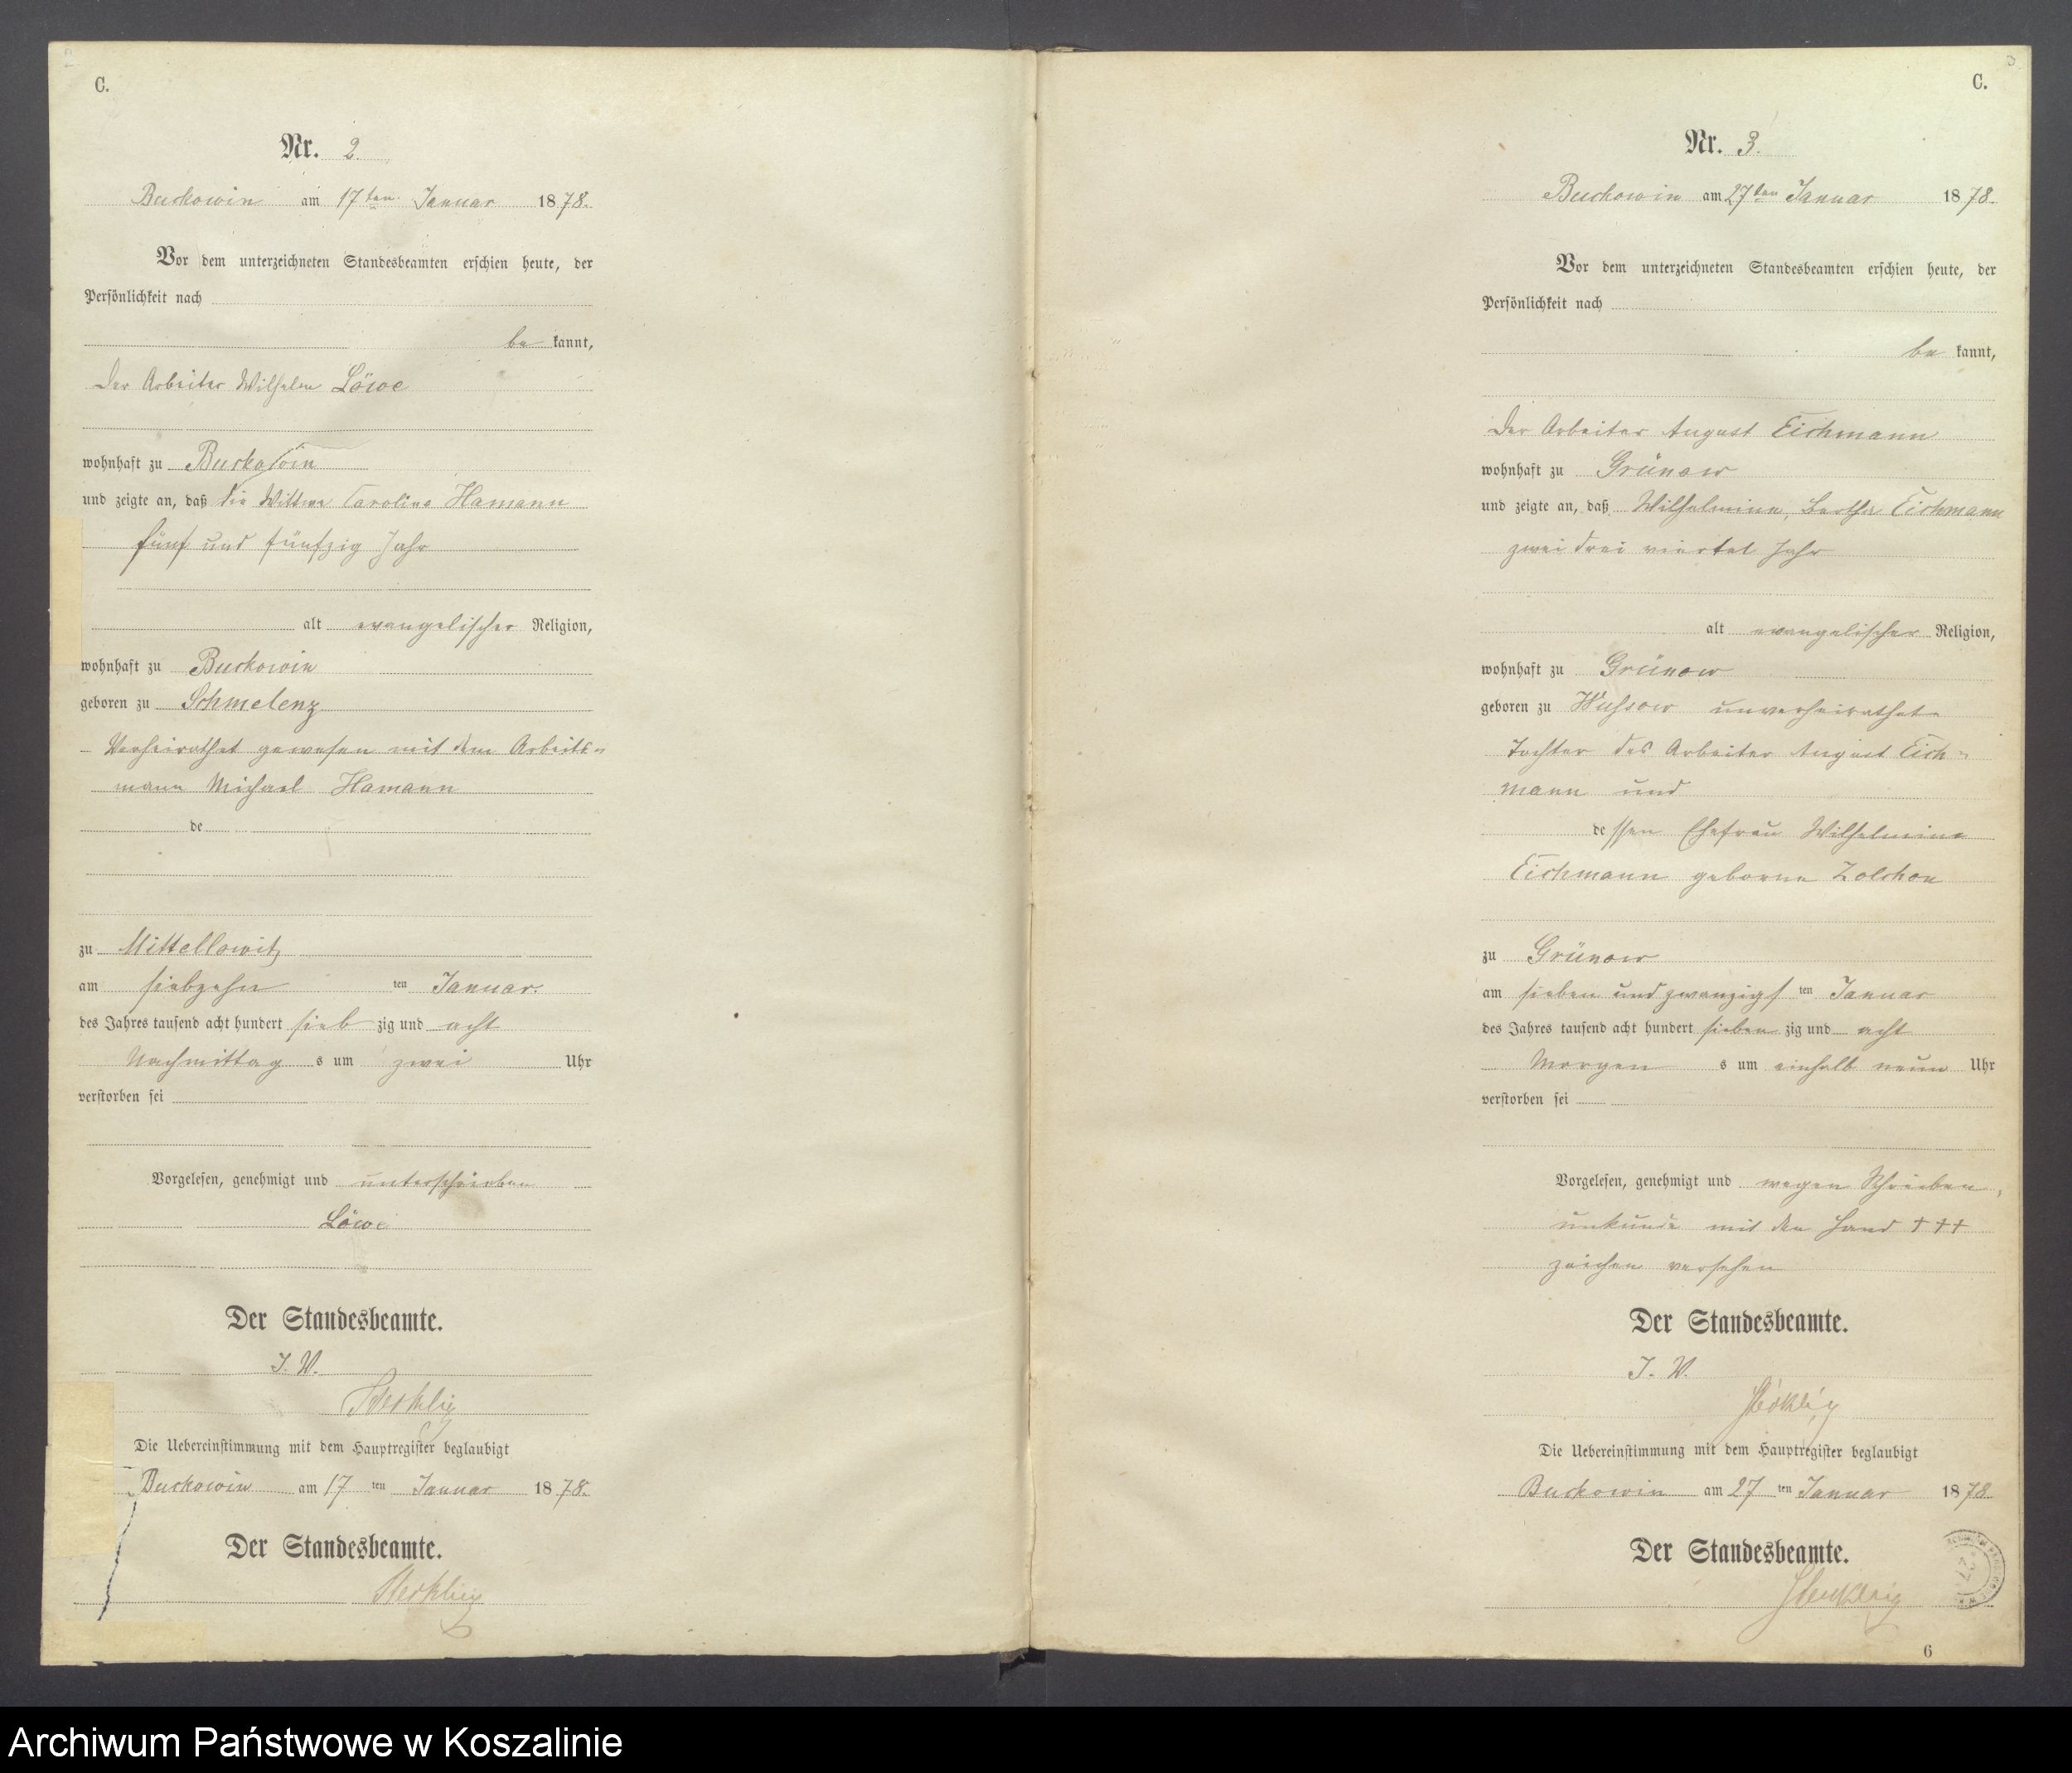 C.
Nr. 2.
Buckowin am 17ten Januar 1878.
Vor dem unterzeichneten Standesbeamten erschien heute, der
Persönlichkeit nach
be kannt,
Der Arbeiter Wilhelm Löwe
wohnhaft zu Buckowin
und zeigte an, daß die Wittwe Caroline Hamann
fünf und fünfzig Jahr
alt evangelischer Religion,
wohnhaft zu Buckowin
geboren zu Schmelenz
Verheirathet gewesen mit dem Arbeits=
mann Michael Hamann
de
zu Mittellowitz
am siebzehn ten Januar.
des Jahres tausend acht hundert sieb zig und acht
Nachmittag s um zwei Uhr
verstorben sei
Vorgelesen, genehmigt und unterschrieben
Löwe
Der Standesbeamte.
I. V.
Die Uebereinstimmung mit dem Hauptregister beglaubigt
Buckowin am 17 ten Januar 1878.
Der Standesbeamte.
3
C.
Nr. 3.
Buckowin am 27ten Januar 1878.
Vor dem unterzeichneten Standesbeamten erschien heute, der
Persönlichkeit nach
be kannt,
Der Arbeiter August Eichmann
wohnhaft zu Grünow
und zeigte an, daß Wilhelmine, Bertha Eichmann
zwei drei viertel Jahr
alt evangelischer Religion,
wohnhaft zu Grünow
geboren zu Wussow unverheirathet
Tochter des Arbeiter August Eich=
mann und
dessen Ehefrau Wilhelmine
Eichmann geborne Zolchow
zu Grünow
am sieben und zwanzigs ten Januar
des Jahres tausend acht hundert sieben zig und acht
Morgen s um einhalb neun Uhr
verstorben sei
Vorgelesen, genehmigt und wegen Schreiben
unkunde mit den Hand +++
zeichen versehen
Der Standesbeamte.
I. V.
Die Uebereinstimmung mit dem Hauptregister beglaubigt
Buckowin am 27 ten Januar 1878
Der Standesbeamte.
6
Archiwum Państwowe w Koszalinie